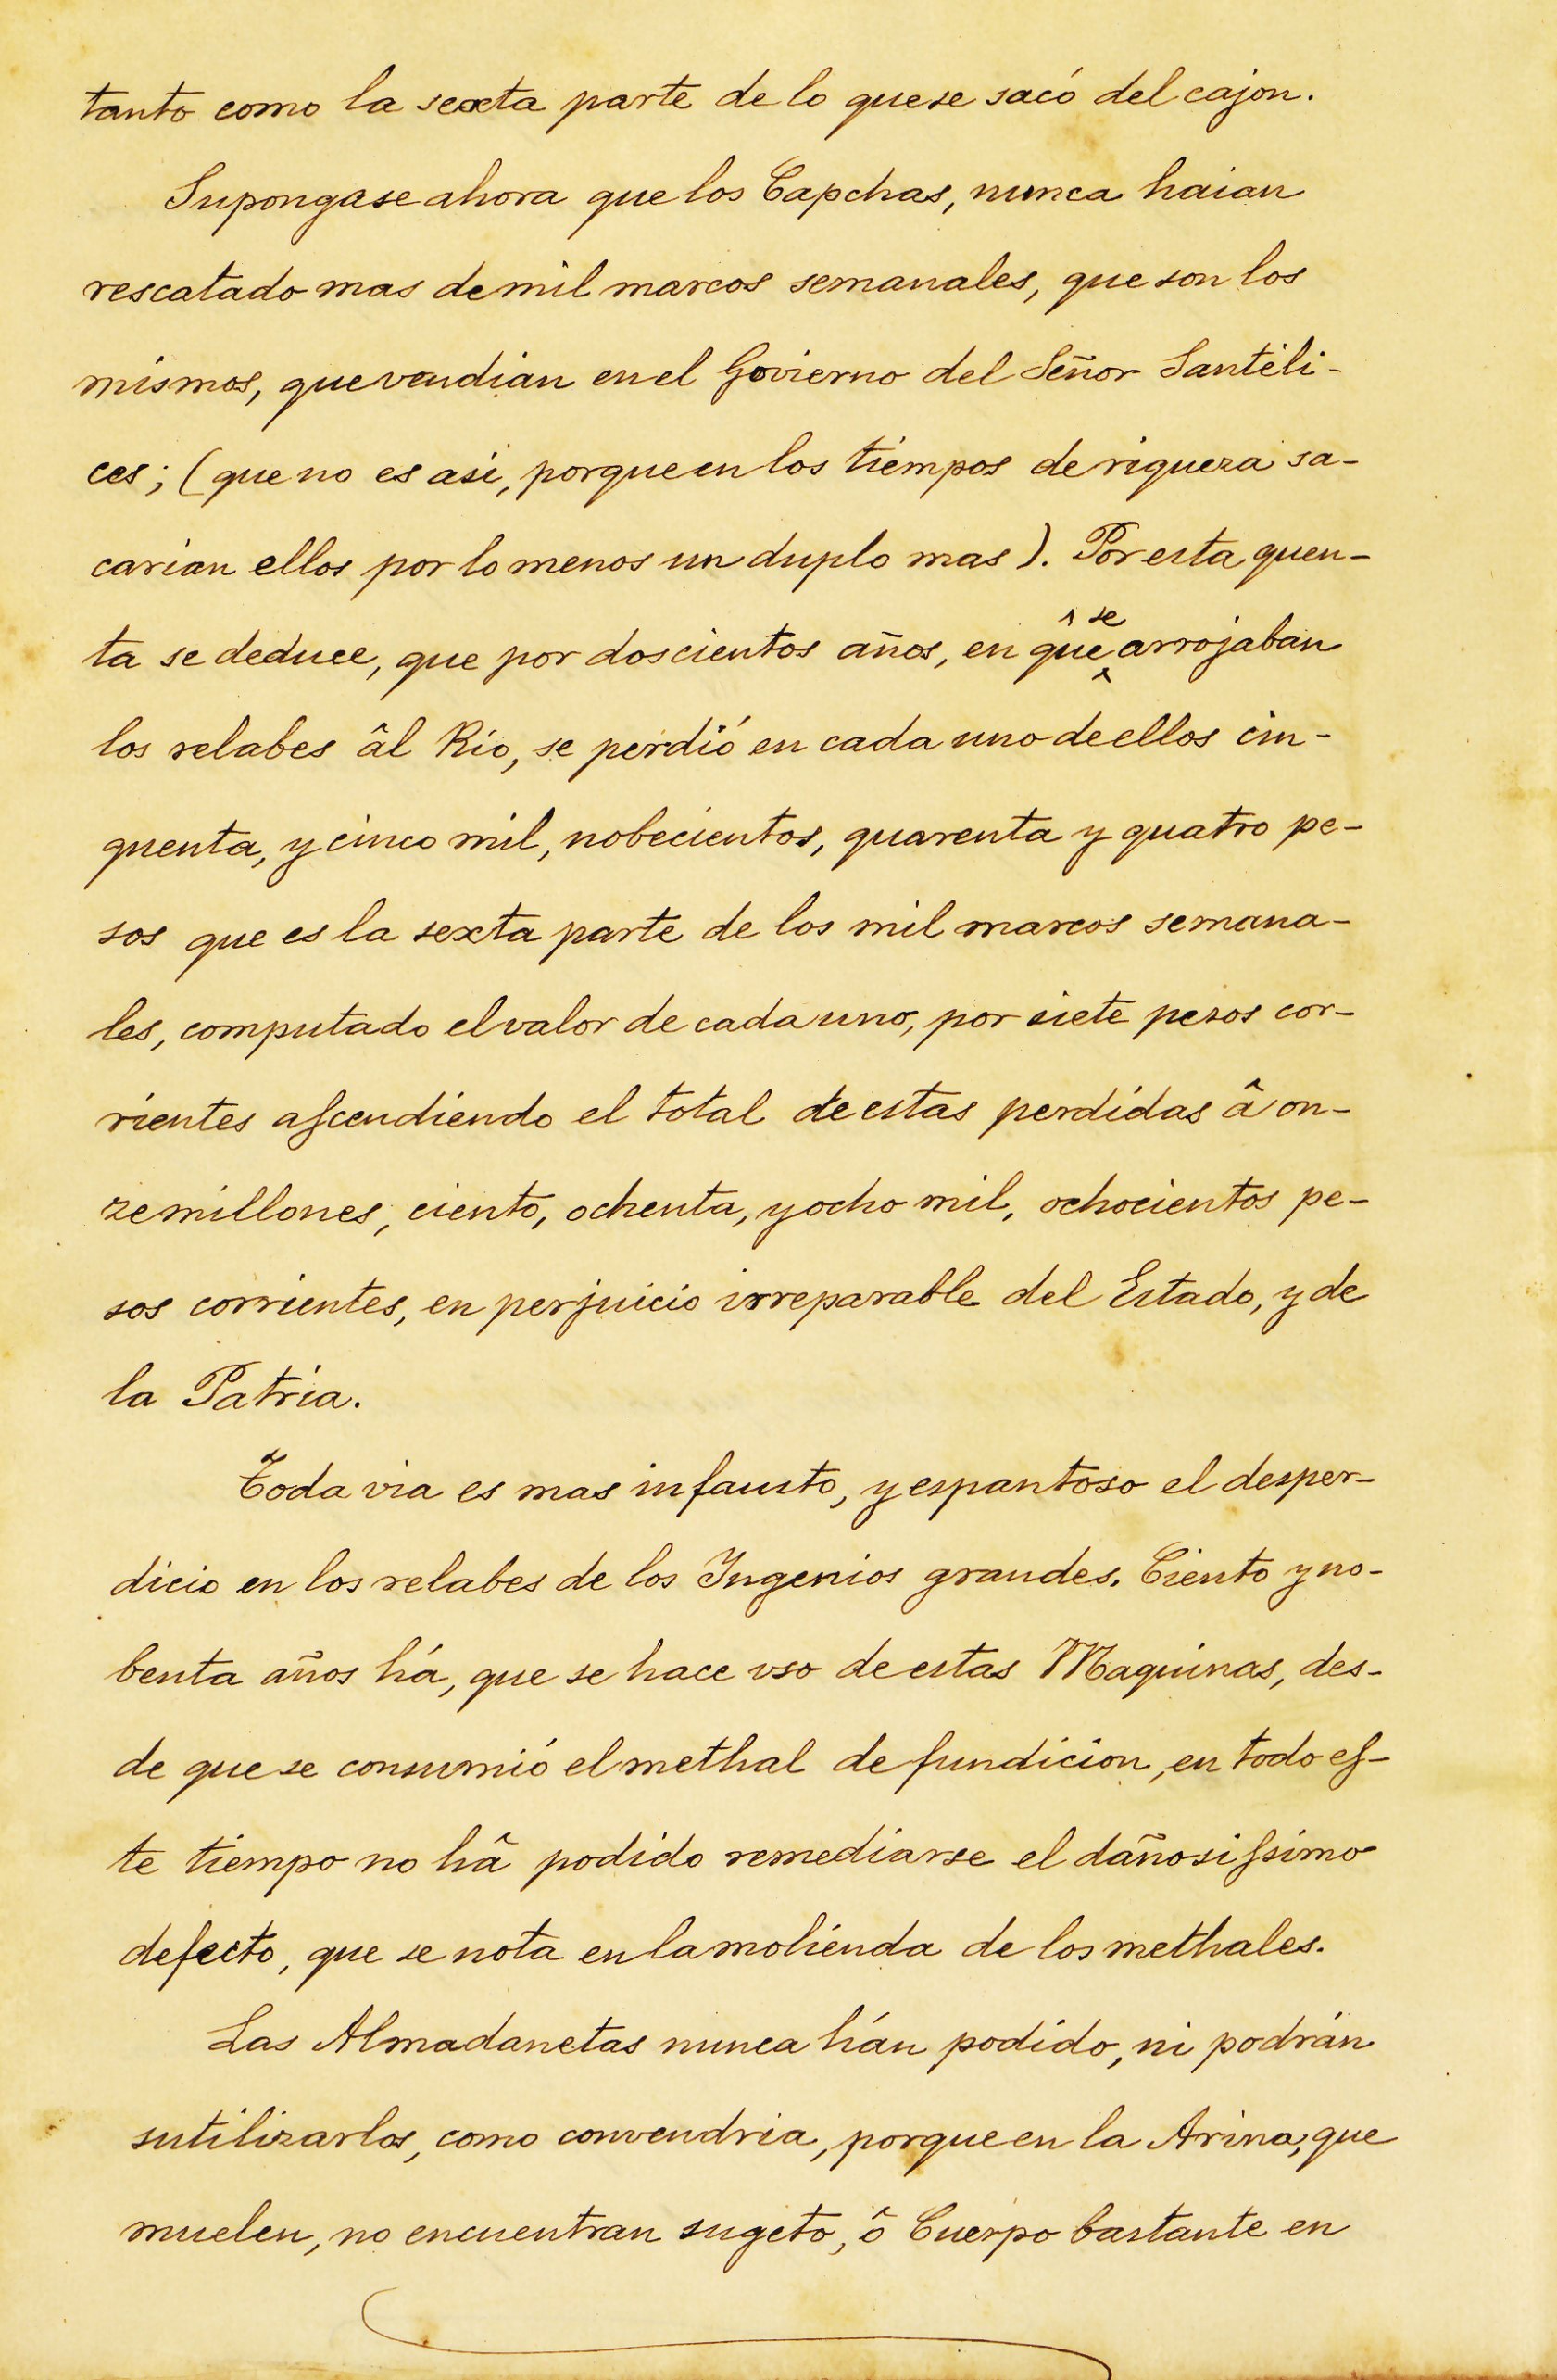 tanto como la sexta parte de lo que se sacó del cajon.
Supongase ahora que los Capchas, nunca haian
rescatado mas de mil marcos semanales, que son los
mismos, que vendian en el Govierno del Señor Santeli-
ces; (que no es asi, porque en los tiempos de riqueza sa-
carian ellos por lo menos un duplo mas). Por esta quen-
ta se deduce, que por doscientos años, en qûe se arrojaban
los relabes âl Rio, se perdió en cada uno de ellos cin-
quenta, y cinco mil, nobecientos, quarenta y quatro pe-
sos que es la sexta parte de los mil marcos semana-
les, computado el valor de cada uno, por siete pezos cor-
rientes aſcendiendo el total de estas perdidas â on-
ze millones, ciento, ochenta, y ocho mil, ochocientos pe-
sos corrientes, en perjuicio irreparable del Estado, y de
la Patria.
Toda via es mas infausto, y espantoso el desper-
dicio en los relabes de los Ingenios grandes. Ciento y no-
benta años há, que se hace vso de estas Maquinas, des-
de que se consumió el methal de fundicion, en todo eſ-
te tiempo no hâ podido remediarse el dañosiſsimo
defecto, que se nota en la molienda de los methales.
Las Almadanetas nunca hán podido, ni podrán
sutilizarlos, como convendria, porque en la Arina, que
muelen, no encuentran sugeto, ô Cuerpo bastante en